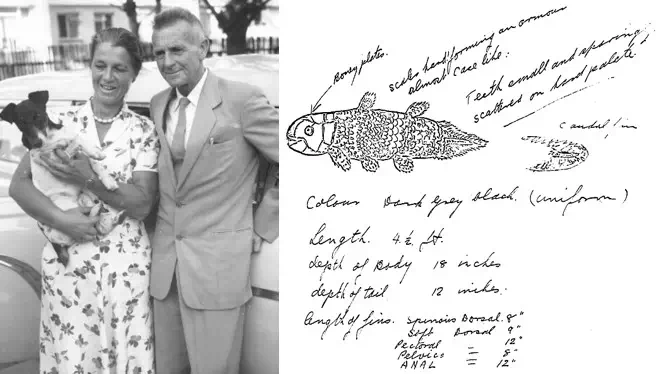 Boney plates.
scales hard forming an armour
almost case like.
Teeth small and sparsing
scattered on hard palate
Caudal fin
Colour Dark grey black. (uniform)
Length. 4½ ft.
depth of Body 18 inches
depth of tail 12 inches.
length of fins. Spinous Dorsal. 8"
Soft Dorsal 9"
Pectoral = 12"
Pelvics = 8"
ANAL = 12"